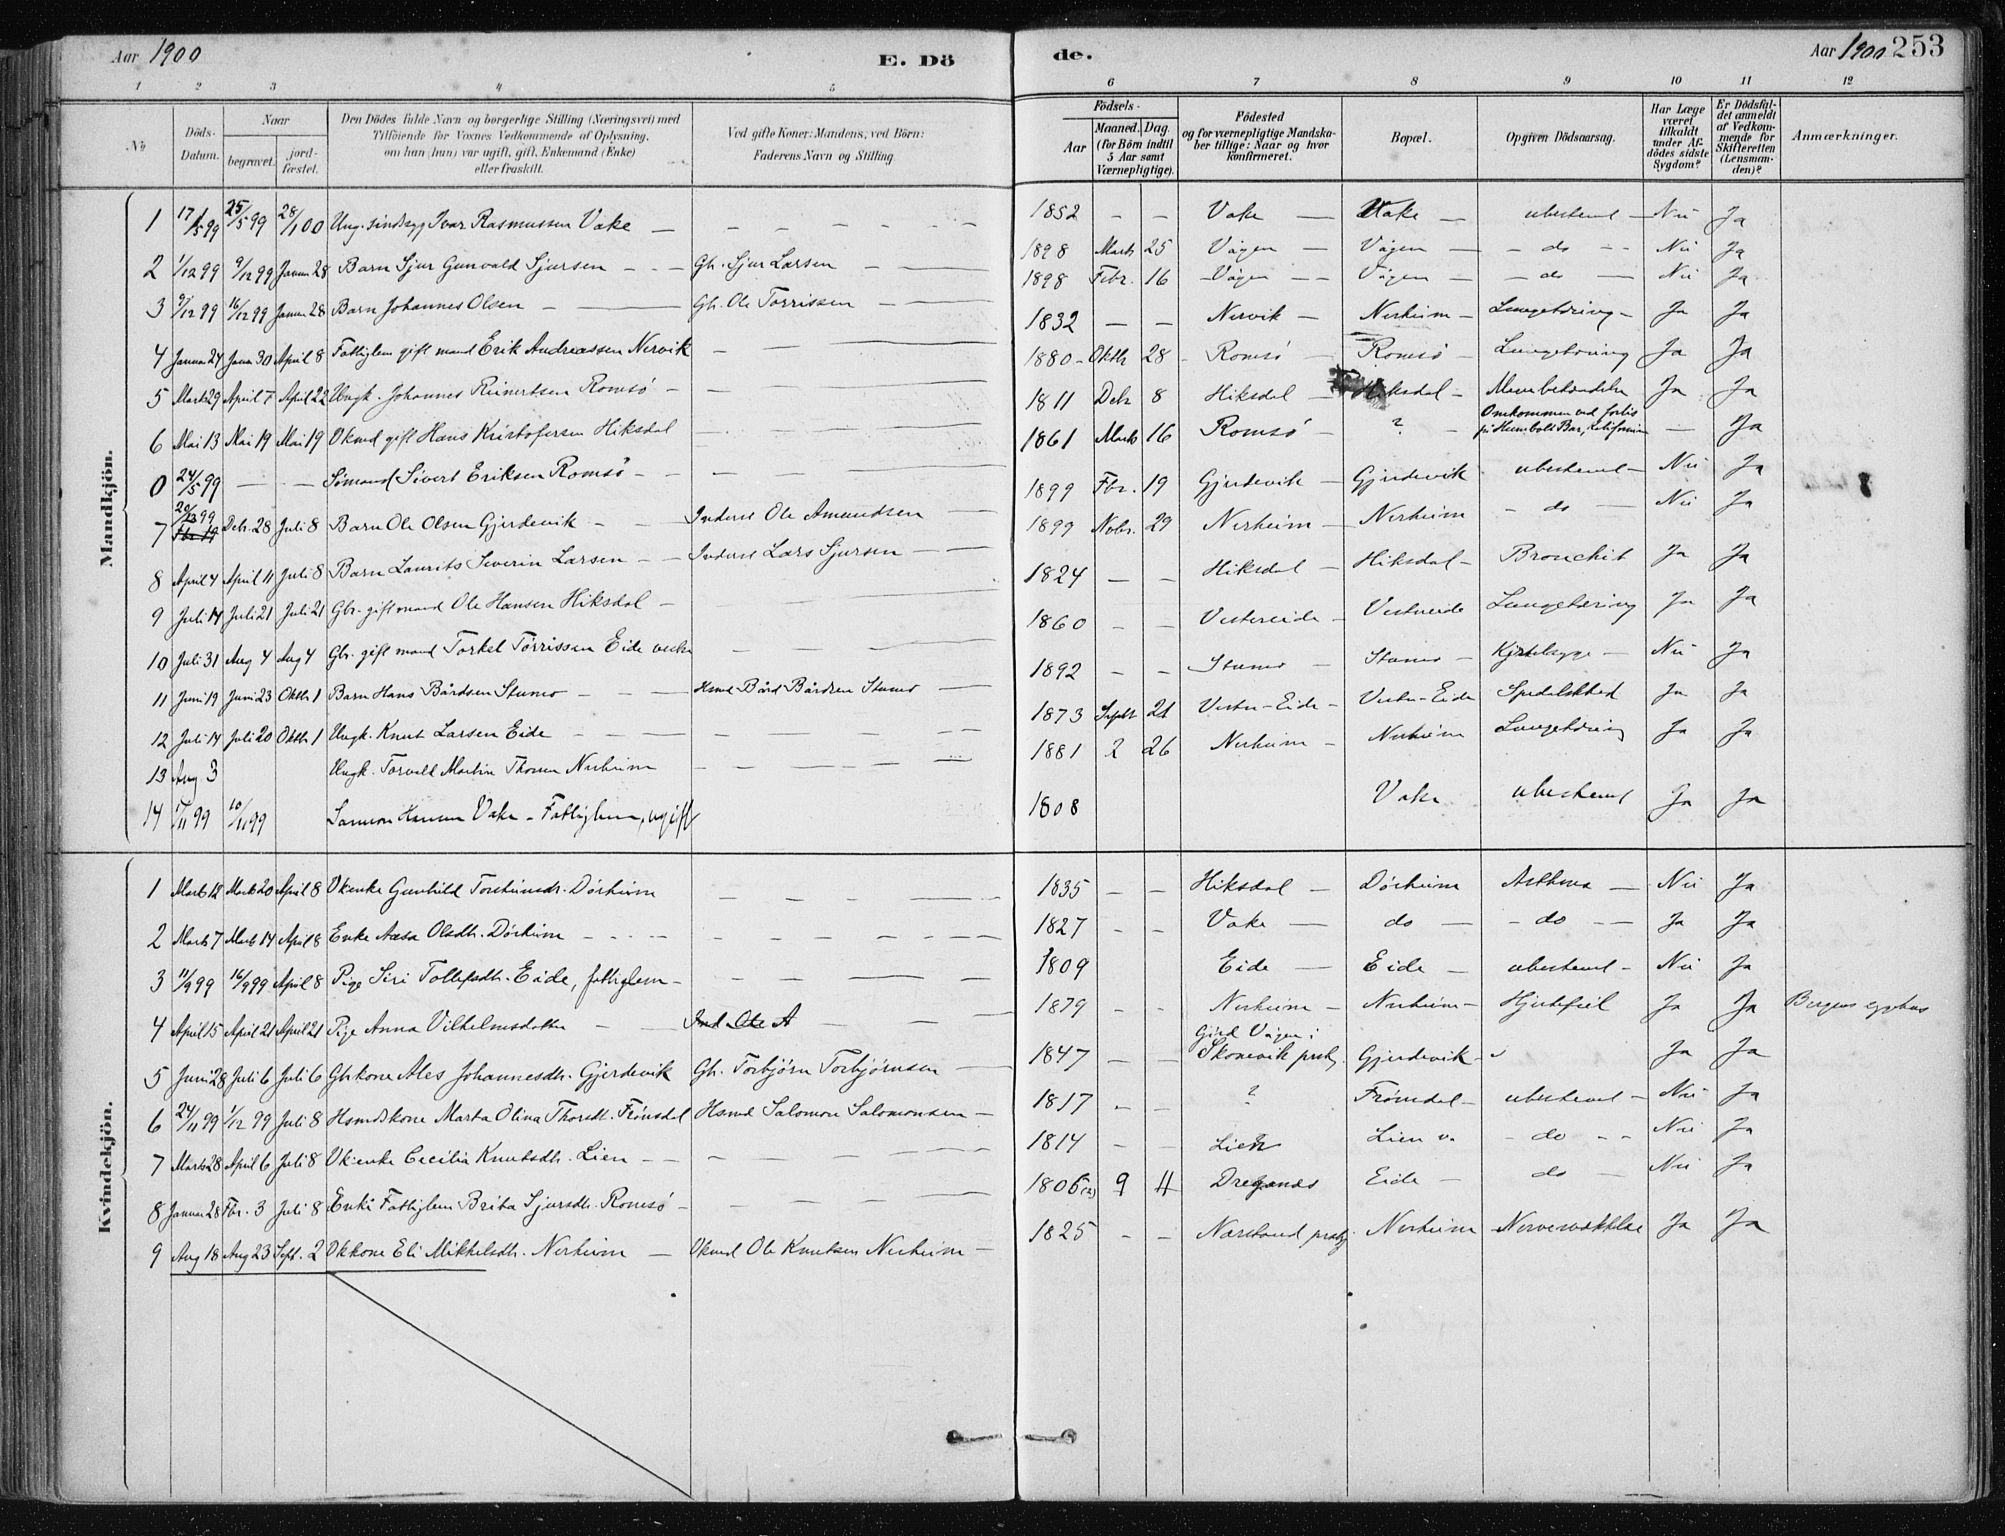 Aar 1900
E. Dö
de.
Aar 1900 253
1 2 3 4 5 6 7 8 9 10 11 12
No
Döds-Datum.
Naar
begravet.
jord-fæstet.
Den Dödes fulde Navn og borgerlige Stilling (Næringsvei) med
Tilföiende for Voxnes Vedkommende af Oplysning,
om han (hun) var ugift, gift, Enkemand (Enke)
eller fraskilt.
Ved gifte Koner: Mandens, ved Börn:
Faderens Navn og Stilling.
Födsels-
Aar
Maaned. Dag.
(for Börn indtil
5 Aar samt
Værnepligtige).
Födested
og for værnepligtige Mandska-
ber tillige: Naar og hvor
konfirmeret.
Bopæl.
Opgiven Dödsaarsag.
Har Læge
været
tilkaldt
under Af-
dödes sidste
Sygdom?
Er Dödsfal-
det anmeldt
af Vedkom-
mende for
Skifteretten
(Lensman-
den)?
Anmærkninger.
Mandkjön.
1 17/5 99 25/5 99 28/1 00 Ung. sindsyg Ivar Rasmussen Vake — 1852 — — Vake — Vake — ubestemt — Nei Ja
2 1/12 99 9/12 99 Januar 28 Barn Sjur Gunvald Sjursen — Gb. Sjur Larsen — 1898 Marts 25 Vågen — Vågen — do — Nei Ja
3 9/12 99 16/12 99 Januar 28 Barn Johannes Olsen — Gb. Ole Torrissen — 1898 Febr. 16 Vågen — Vågen — do — Nei Ja
4 Januar 24 Janr 30 April 8 Fattiglem gift mand Erik Andreassen Nervik — 1832 — — Nervik — Nerheim — Lungetæring — Ja Ja
5 Marts 29 April 7 April 22 Ungk. Johannes Reinertsen Romsö — 1880 — Oktbr 28 Romsö — Romsö — Lungetæring Ja Ja
6 Mai 13 Mai 19 Mai 19 Vkmd gift Hans Kristofersen Hiksdal — 1811 Debr 8 Hiksdal — Hiksdal — Ja Ja
0 24/5 99 — — Sömand Sivert Eriksen Romsö — 1861 Marts 16 Romsö ? — Omkommen ved forlis på Humboldt Bar, Kalifornien — Ja
7 20/12 99 Debr. 28 Juli 8 Barn Ole Olsen Gjerdevik — Inderst Ole Amundsen — 1899 Fbr. 19 Gjerdevik — Gjerdevik ubestemt — Nei Ja
8 April 4 April 11 Juli 8 Barn Laurits Severin Larsen — Inderst Lars Sjursen — 1899 Nvbr. 29 Nerheim — Nerheim — do — Nei Ja
9 Juli 14 Juli 21 Juli 21 Gbr. gift mand Ole Hansen Hiksdal — 1824 — — Hiksdal — Hiksdal — Bronchit Ja Ja
10 Juli 31 Aug 4 Aug 4 Gbr. gift mand Torkel Torrissen Eide vestre — 1860 — — Vestreeide — Vestreeide Lungetæring Ja Ja
11 Juni 19 Juni 23 Oktbr 1 Barn Hans Bårdsen Stumo — Hsmd Bård Bårdsen Stumo — 1892 — — Stumo — Stumo — Nei Ja
12 Juli 14 Juli 20 Oktbr 1 Ungk. Knut Larsen Eide — 1873 Septbr 21 Vestre-Eide — Vestre-Eide Spedalskhed Ja Ja
13 Aug 3 Ungk. Torvald Martin Thorsen Nerheim — 1881 2 26 Nerheim — Nerheim Lungetæring Ja Ja
14 1/11 99 10/11 99 Samson Hansen Vake — Fattiglem, ugift 1808 Vake ubestemt Ja Ja
Kvindekjön.
1 Marts 12 Marts 20 April 8 Vkenke Gunhild Torsteinsdr. Dörheim — 1835 — — Hiksdal — Dörheim Asthma — Nei Ja
2 Marts 7 Marts 14 April 8 Enke Aasa Olsdtr. Dörheim — 1827 — — Vake — do — — do — Ja Ja
3 11/9 99 16/9 99 April 8 Pige Siri Tollefsdtr. Eide, fattiglem — 1809 Eide — Eide — ubestemt — Nei Ja
4 April 15 April 21 April 21 Pige Anna Vilhelmsdotter — Ind Ole A — 1879 — — Nerheim — Nerheim — Hjertefeil Ja Ja Bergens sygehus
5 Juni 28 Juli 6 Juli 6 Gbkone Ales Johannesdtr. Gjerdevik Gb. Torbjörn Torbjörnsen — 1847 — — Gård Vågen i Skonevik prstgj. Gjerdevik — Ja Ja
6 24/11 99 1/12 99 Juli 8 Hsmdskone Marta Olina Thorsdtr. Frönsdal Hsmd Salomon Salomonsen — 1817 — — ? Frönsdal — ubestemt — Nei Ja
7 Marts 28 April 6 Juli 8 Vkenke Cecilia Knutsdtr. Lien — 1814 — — Lien Lien v. — do — Nei Ja
8 Januar 28 Fbr. 3 Juli 8 Enke Fattiglem Brita Sjursdtr. Romsö — 1806 (2) 9 4 Dreganes Eide — do — Nei Ja
9 Aug 18 Aug 23 Sept. 2 Vkkone Eli Mikkelsdtr. Nerheim — Vkmd Ole Knutsen Nerheim — 1825 — — Nærstrand prstgj. Nerheim Nervesvækkelse Ja Ja